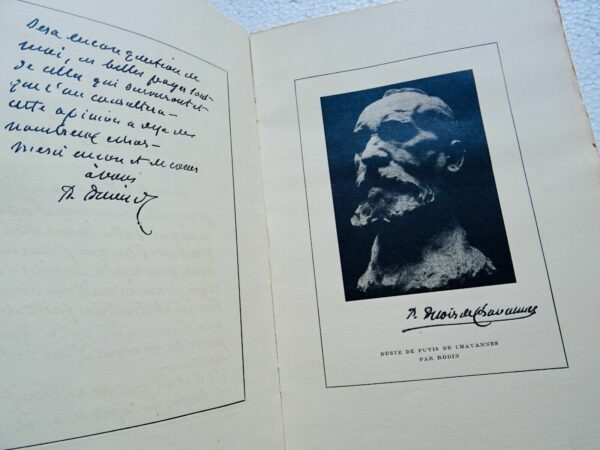 Sera encore question de
moi, ces belles pages sont
de celles qui survivront et
que l'on consultera –
cette opinion a déjà de
nombreux échos –
merci encore et de cœur
à vous
P. Puvis
P. Puvis de Chavannes
BUSTE DE PUVIS DE CHAVANNES
PAR RODIN